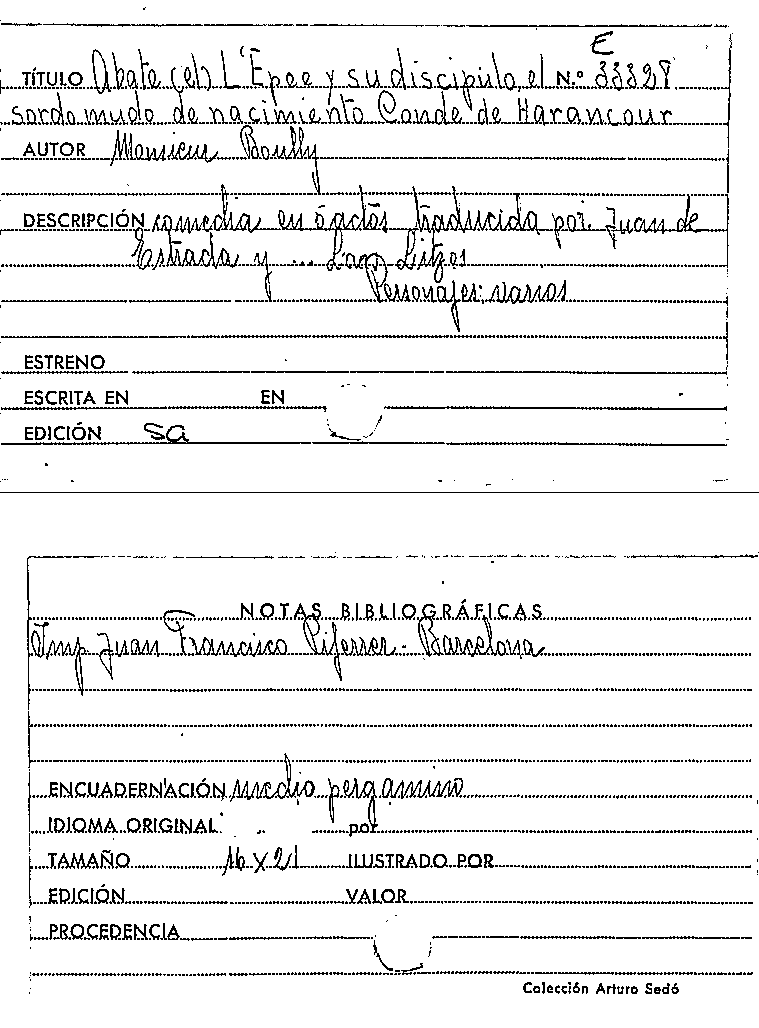 E
TÍTULO Abate (el) L'Epee y su discipulo, el N.º 33328
sordomudo de nacimiento Conde de Harancour
AUTOR Monsieur Boully
DESCRIPCIÓN comedia en 5 actos traducida por Juan de
Estrada y ...
Personajes: varios
ESTRENO
ESCRITA EN EN
EDICIÓN sa
NOTAS BIBLIOGRÁFICAS
Imp Juan Francisco Piferrer - Barcelona
ENCUADERNACIÓN medio pergamino
IDIOMA ORIGINAL por
TAMAÑO 16 X 21 ILUSTRADO POR
EDICIÓN VALOR
PROCEDENCIA
Colección Arturo Sedó